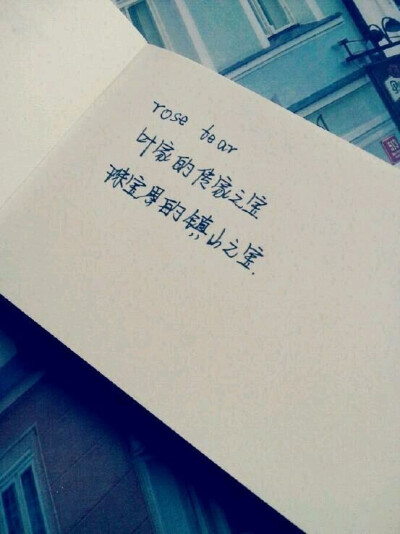 rose tear
叶家的传家之宝
珠宝界的镇山之宝.